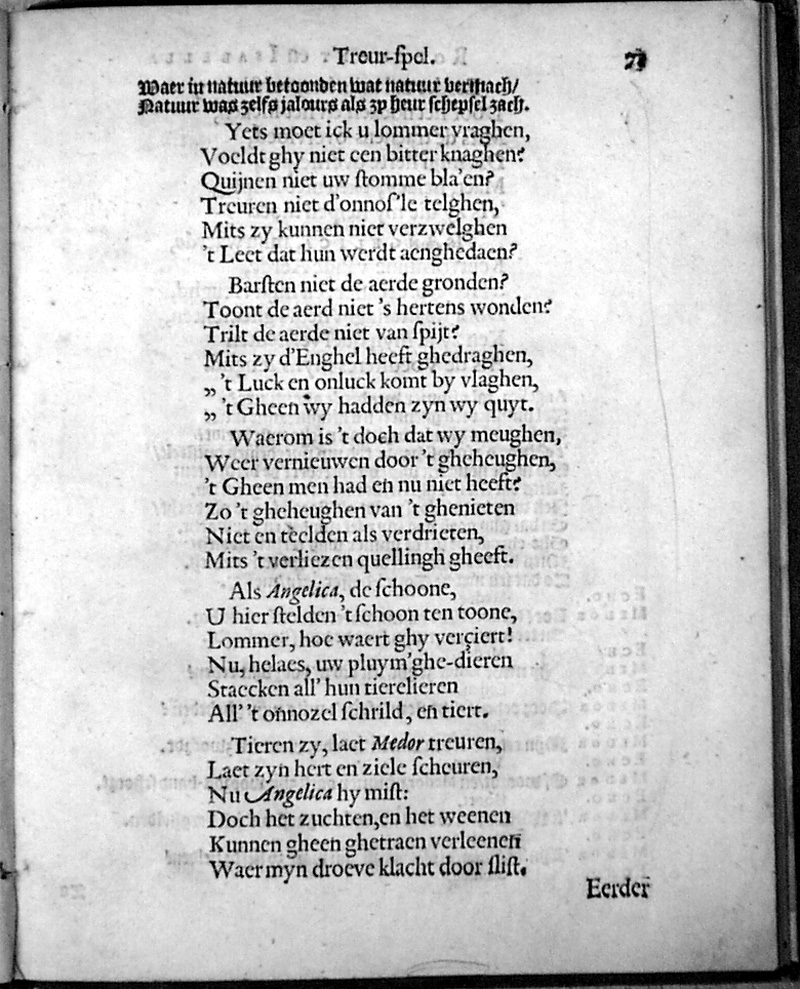 Treur-ſpel. 77
Waer in natuur betoonden wat natuur vermach/
Natuur was zelfs jalours als zy heur ſchepſel zach.
Yets moet ick u lommer vraghen,
Voeldt ghy niet een bitter knaghen?
Quijnen niet uw ſtomme bla'en?
Treuren niet d'onnoſ'le telghen,
Mits zy kunnen niet verzwelghen
't Leet dat hun werdt aenghedaen?
Barſten niet de aerde gronden?
Toont de aerd niet 's hertens wonden?
Trilt de aerde niet van ſpijt?
Mits zy d'Enghel heeft ghedraghen,
„ 't Luck en onluck komt by vlaghen,
„ 't Gheen wy hadden zyn wy quyt.
Waerom is 't doch dat wy meughen,
Weer vernieuwen door 't gheheughen,
't Gheen men had en nu niet heeft?
Zo 't gheheughen van 't ghenieten
Niet en teelden als verdrieten,
Mits 't verliezen quellingh gheeft.
Als Angelica, de ſchoone,
U hier ſtelden 't ſchoon ten toone,
Lommer, hoe waert ghy verçiert!
Nu, helaes, uw pluym'ghe-dieren
Staecken all' hun tierelieren
All' 't onnozel ſchrild, en tiert.
Tieren zy, laet Medor treuren,
Laet zyn hert en ziele ſcheuren,
Nu Angelica hy miſt:
Doch het zuchten, en het weenen
Kunnen gheen ghetraen verleenen
Waer myn droeve klacht door ſliſt.
Eerder